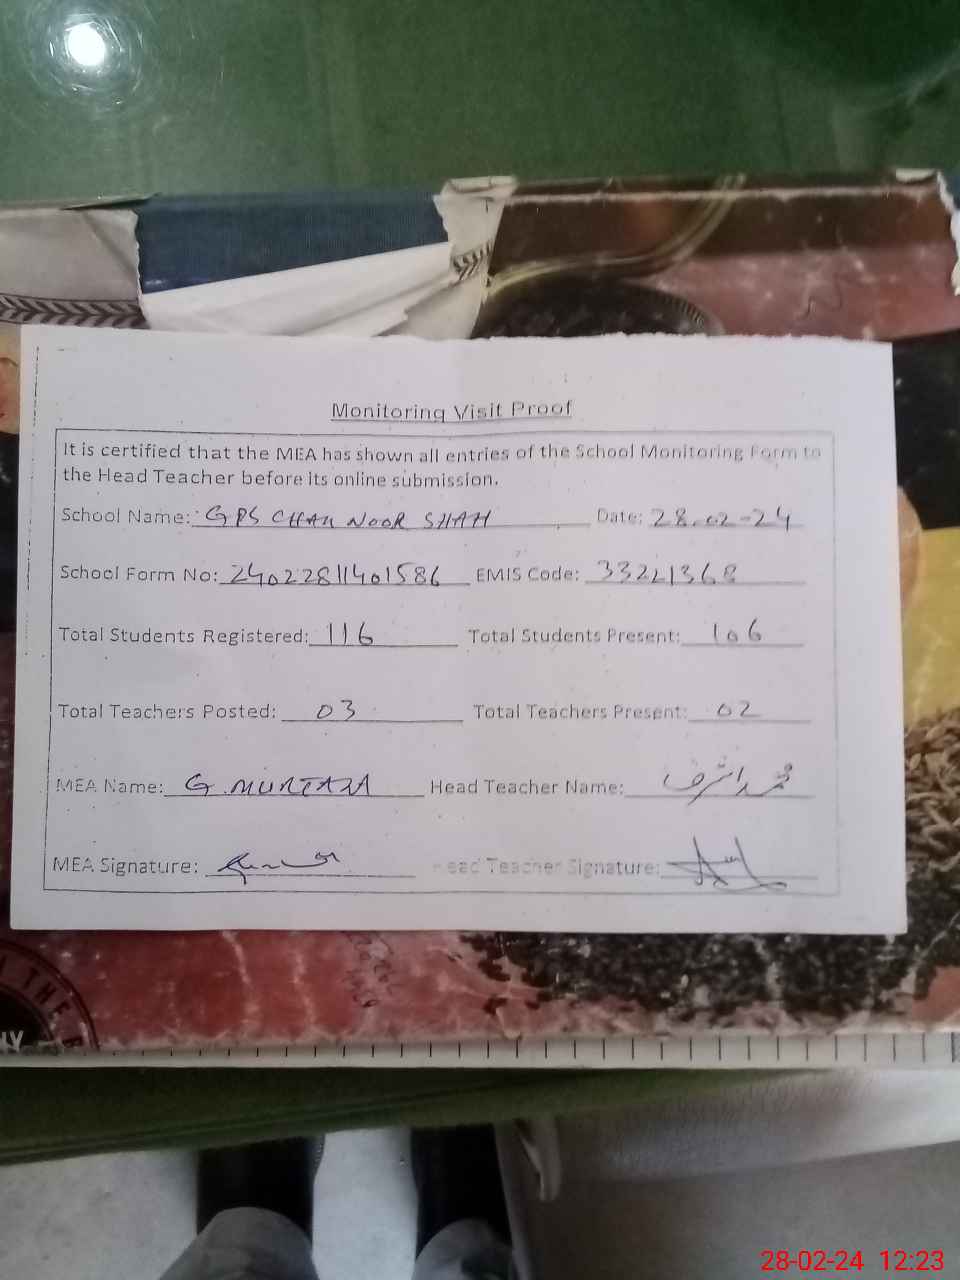 Monitoring Visit Proof
It is certified that the MEA has shown all entries of the School Monitoring Form to
the Head Teacher before its online submission.
School Name: GPS CHAH NOOR SHAH Date: 28-02-24
School Form No: 24022811401586 EMIS Code: 33221368
Total Students Registered: 116 Total Students Present: 106
Total Teachers Posted: 03 Total Teachers Present: 02
MEA Name: G. MURTAZA Head Teacher Name: محمد اشرف
MEA Signature: Head Teacher Signature:
THE
28-02-24 12:23